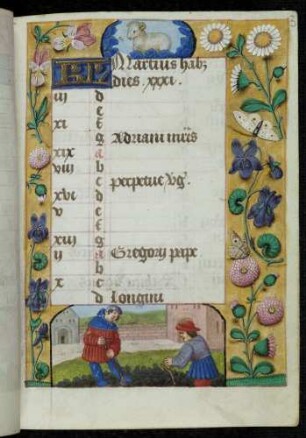 KL Martius hab;
dies. xxxi.
iii d
e
xi f
g Adriani mris
xix A
viii b
c perpetue vg.
xvi d
v e
f
xiii g
ii A Gregory pape
b
x c
d Longini